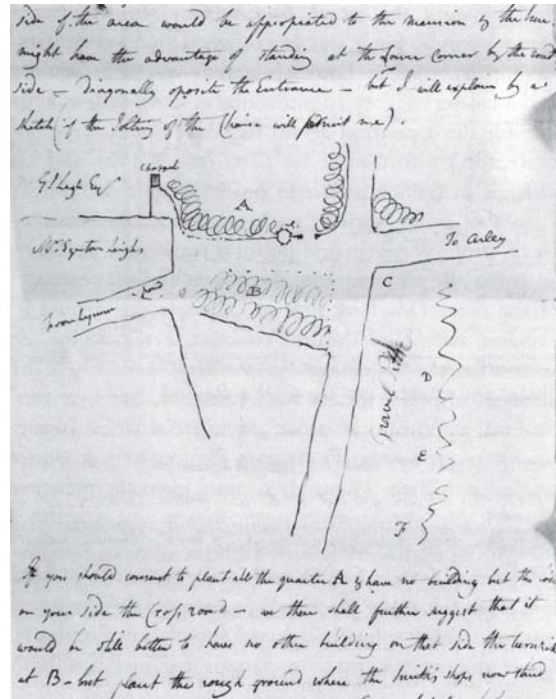 side of the area would be appropriated to the mansion & the house
might have the advantage of standing at the Lower Corner by the road
side – diagonally oposite the Entrance – but I will explain by a
sketch (if the Editing of the will permit me).
Chappel
G. Leigh Esqr
A
To Arley
Mr. Egerton Leighs
B
C
from
Gravel Pitts
D
E
F
If you should consent to plant all the quarter A & have no building but the one
on your side the Cross road – we then shall further suggest that it
would be still better to have no other building on that side the
at B – but plant the rough ground where the smith's shops now stand